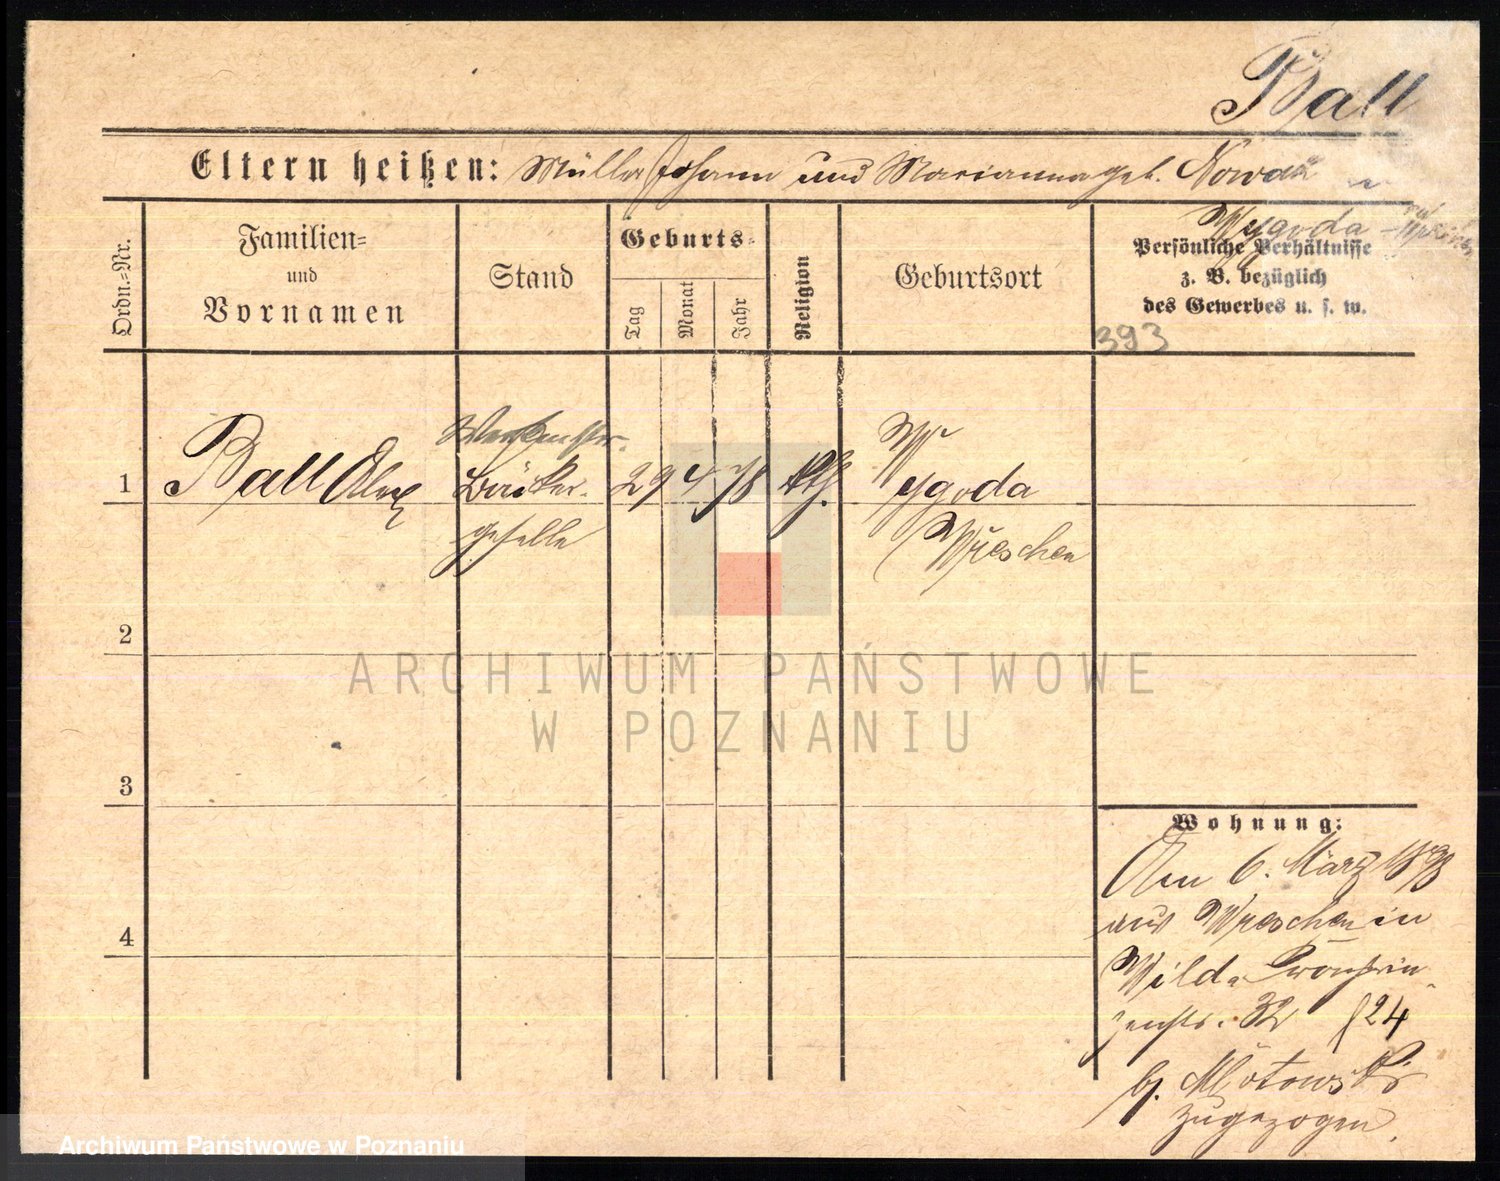 Ball
Eltern heißen: Müller Johann und Marianna geb. Nowak
Wygoda
Ordn.-Nr.
Familien-
und
Vornamen
Stand
Geburts-
Tag
Monat
Jahr
Religion
Geburtsort
Persönliche Verhältnisse
z. B. bezüglich
des Gewerbes u. s. w.
393
1 Ball Alex Bäcker- 29 4 78 kth. Wygoda
geselle Wreschen
2
3
4
Wohnung:
Am 6. März 1898
aus Wreschen in
Wilda Kronprin
zenstr. 32 f 24
zugezogen.
ARCHIWUM PAŃSTWOWE
W POZNANIU
Archiwum Państwowe w Poznaniu